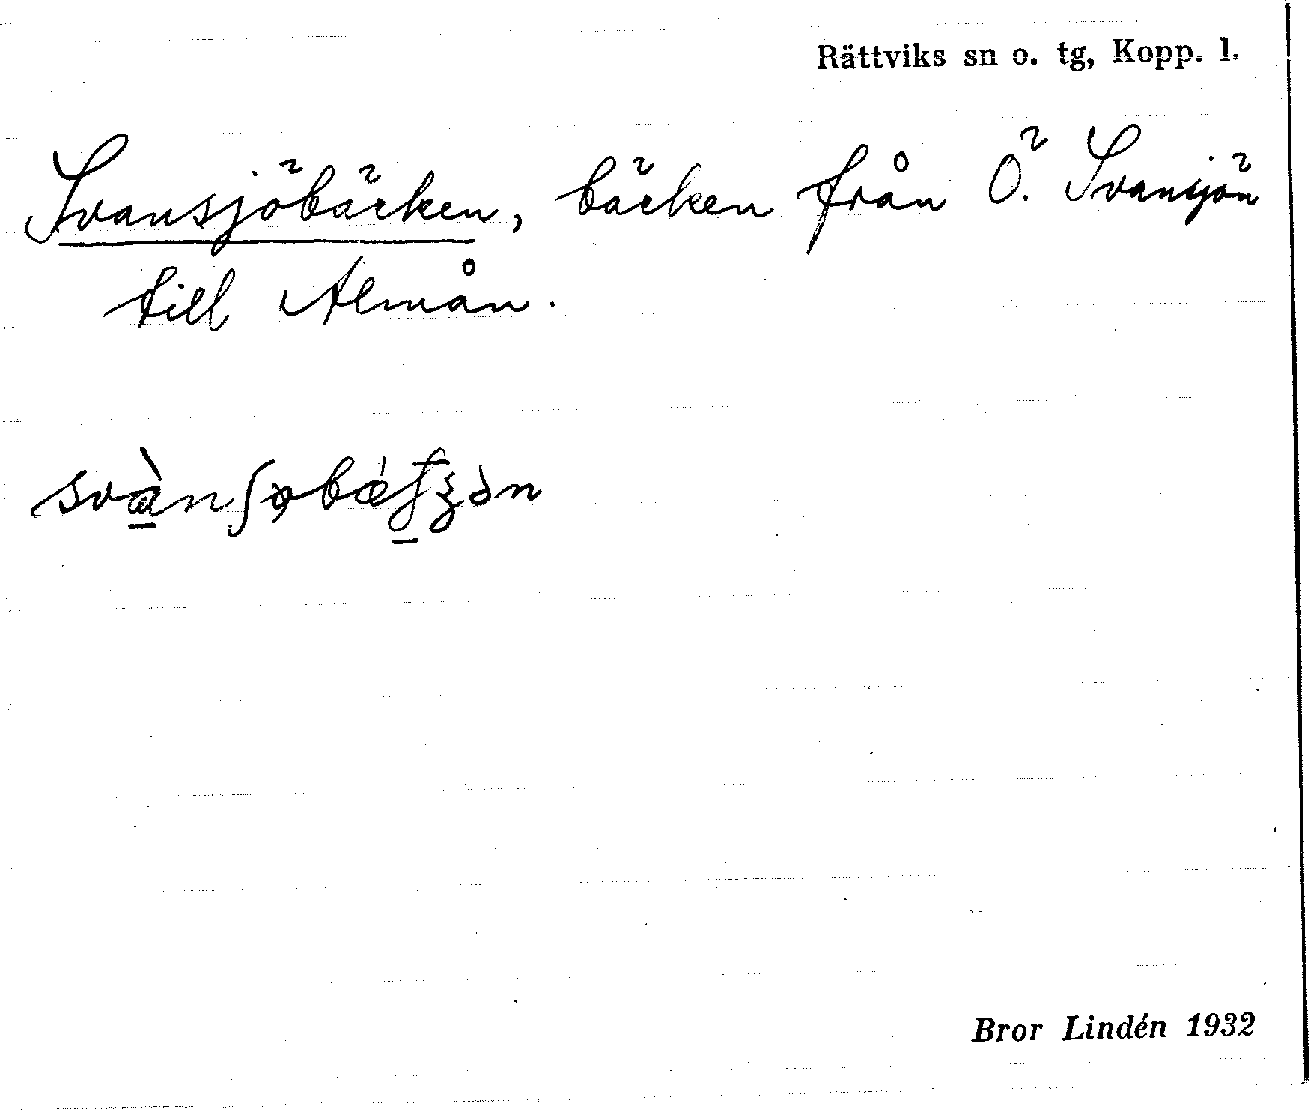 Rättviks sn o. tg, Kopp. l.
Svansjöbäcken, bäcken från Ö. Svansjön
till Almån.
Bror Lindén 1932